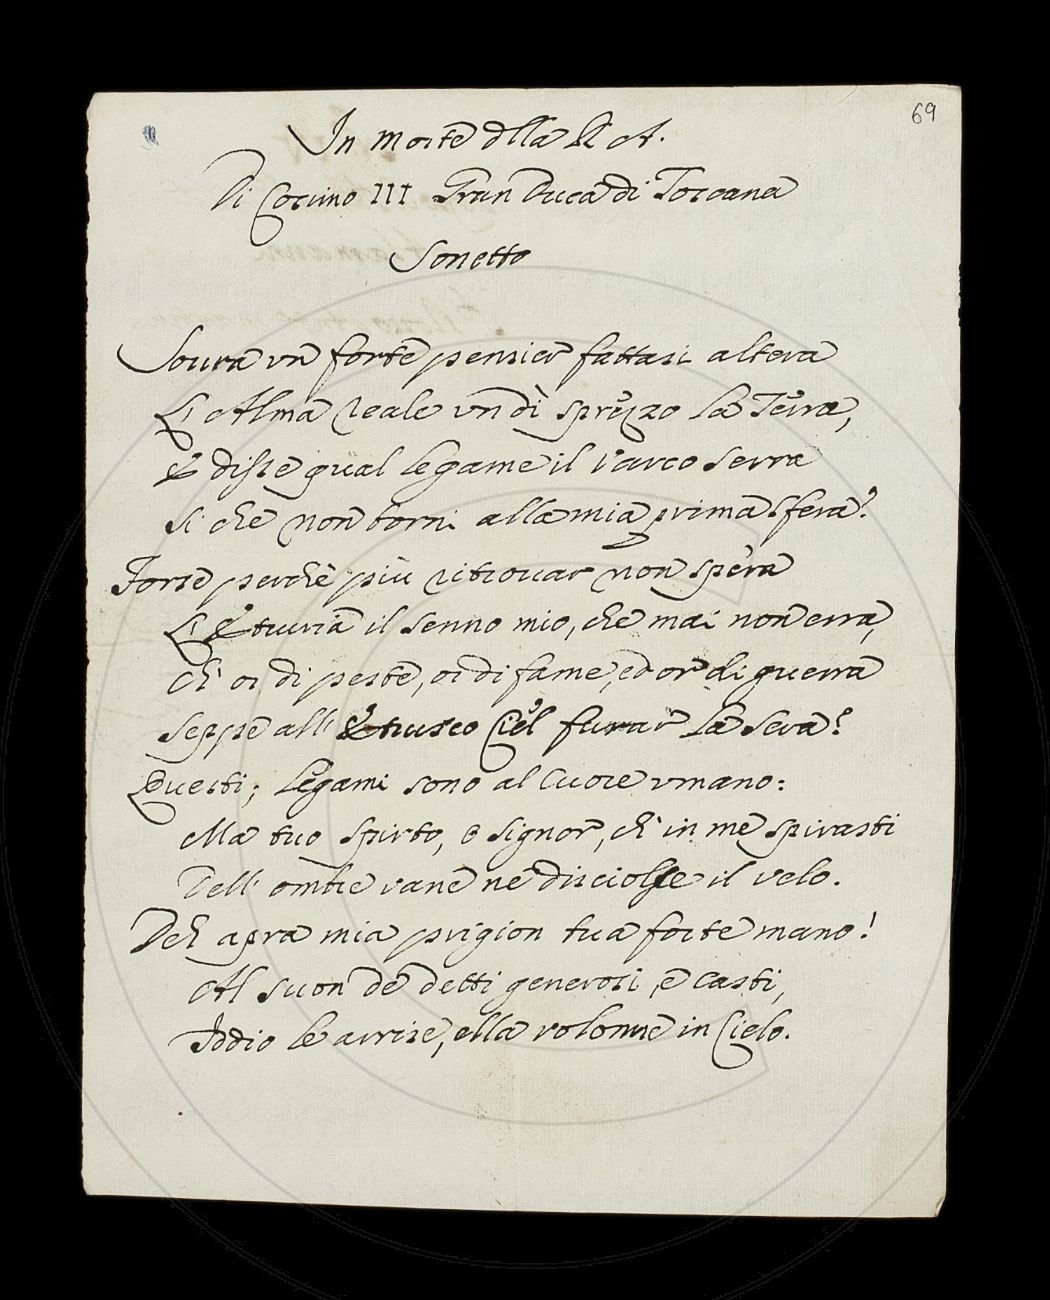 69
In morte dlla R A.
Di Cosimo III Gran Duca di Toscana
Sonetto
Soura vn forte pensier fattasi altera
L' Alma reale vn dì sprezzo la Terra,
E disse qual legame il varco serra
Si che non torni alla mia prima sfera?
Forse perchè più ritrouar non spera
L' Etruria il senno mio, che mai non erra,
Ch' or di peste, or di fame, ed or di guerra
Seppe all' Etrusco Ciel furar la sera?
Questi; legami sono al Cuore vmano:
Ma tuo spirto, o signor, ch' in me spirasti
Dell' ombre vane ne disciolse il velo.
Deh apra mia prigion tua forte mano!
Al suon de detti generosi, e casti,
Iddio le arrise, ella volonne in Cielo.